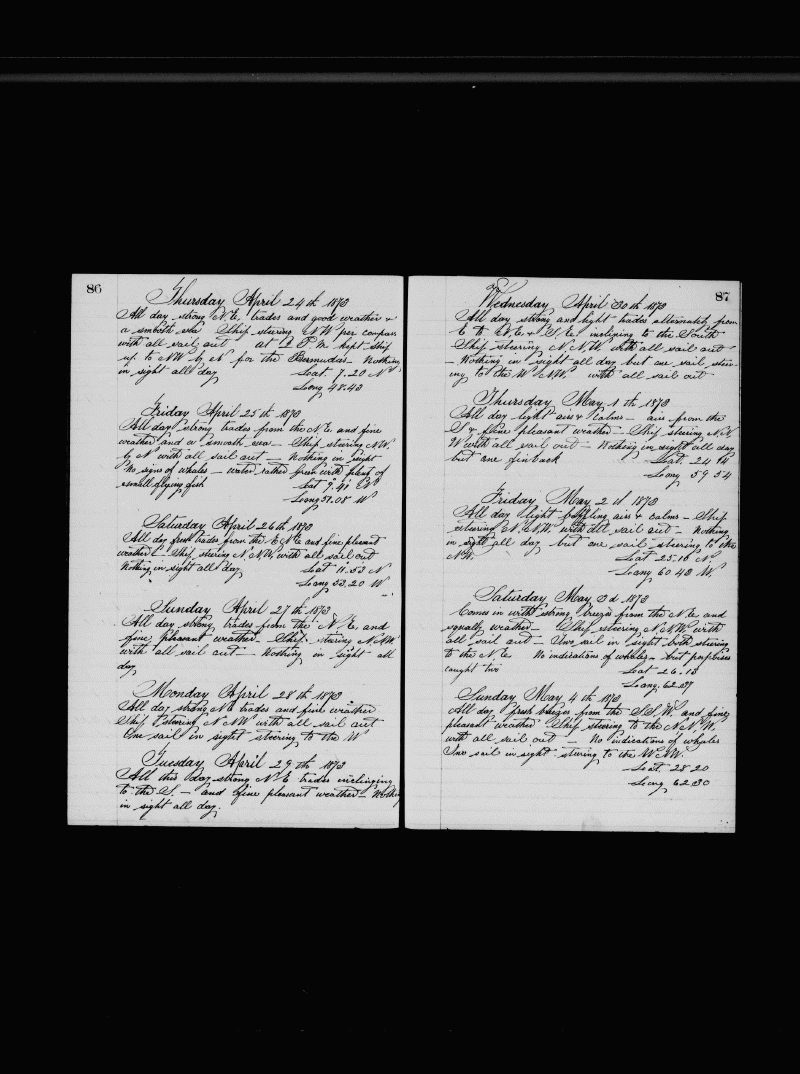 86
Thursday April 24th 1873
All day strong N.E. trades and good weather &
a smooth sea Ship steering NW per compass
with all sail out at P.M. kept ship
up to NW by N for the Bermudas - Nothing
in sight all day Lat. 7.20 N
Long 48.43
Friday April 25th 1873
All day strong trades from the N.E. and fine
weather and a smooth sea - Ship steering NW
by N with all sail out - Nothing in sight
No signs of whales - water rather green with plenty of
small flying fish Lat 9.41 N
Long 51.08 W
Saturday April 26th 1873
All day fresh trades from the ENE and fine pleasant
weather - Ship steering N NW with all sail out
Nothing in sight all day Lat 11.53 N
Long 53.20 W
Sunday April 27th 1873
All day strong trades from the N.E. and
fine pleasant weather - Ship steering N NW
with all sail out - Nothing in sight all
day
Monday April 28th 1873
All day strong NE trades and fine weather
Ship steering N NW with all sail out
One sail in sight steering to the W
Tuesday April 29th 1873
All this day strong N.E trades inclinging
to the S. - and fine pleasant weather - Nothing
in sight all day.
87
Wednesday April 30th 1873
All day strong and light trades alternately from
E to E.N.E & S.E. inclining to the South
Ship steering N.N.W. with all sail out
- Nothing in sight all day but one sail steer-
ing to the W NW. with all sail out
Thursday May 1th 1873
All day light airs & calms - airs from the
S & fine pleasant weather - Ship steering N.N
W with all sail out - Nothing in sight all day
but one finback Lat. 24
Long 59 54
Friday May 2d 1873
All day light baffling airs & calms - Ship
steering N.N.W. with all sail out - Nothing
in sight all day but one sail steering to the
NW. Lat 25.10 N.
Long 60 43 W.
Saturday May 3d 1873
Comes in with strong breezes from the N.E. and
squally weather - Ship steering N.N.W. with
all sail out - Two sail in sight both steering
to the N.E No indications of whales - but porpoises
caught two Lat 26.13
Long. 62.37
Sunday May 4th 1873
All day fresh breezes from the S.S.W. and fine
pleasant weather Ship steering to the N.N.W.
with all sail out - No indications of whales
Two sail in sight steering to the W.N.W.
Lat. 28.20
Long 62.30